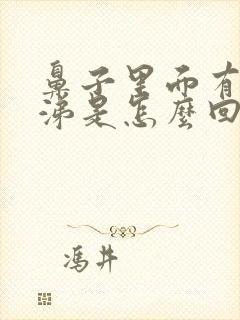 鼻子里而有
涕是怎麼回
馮井